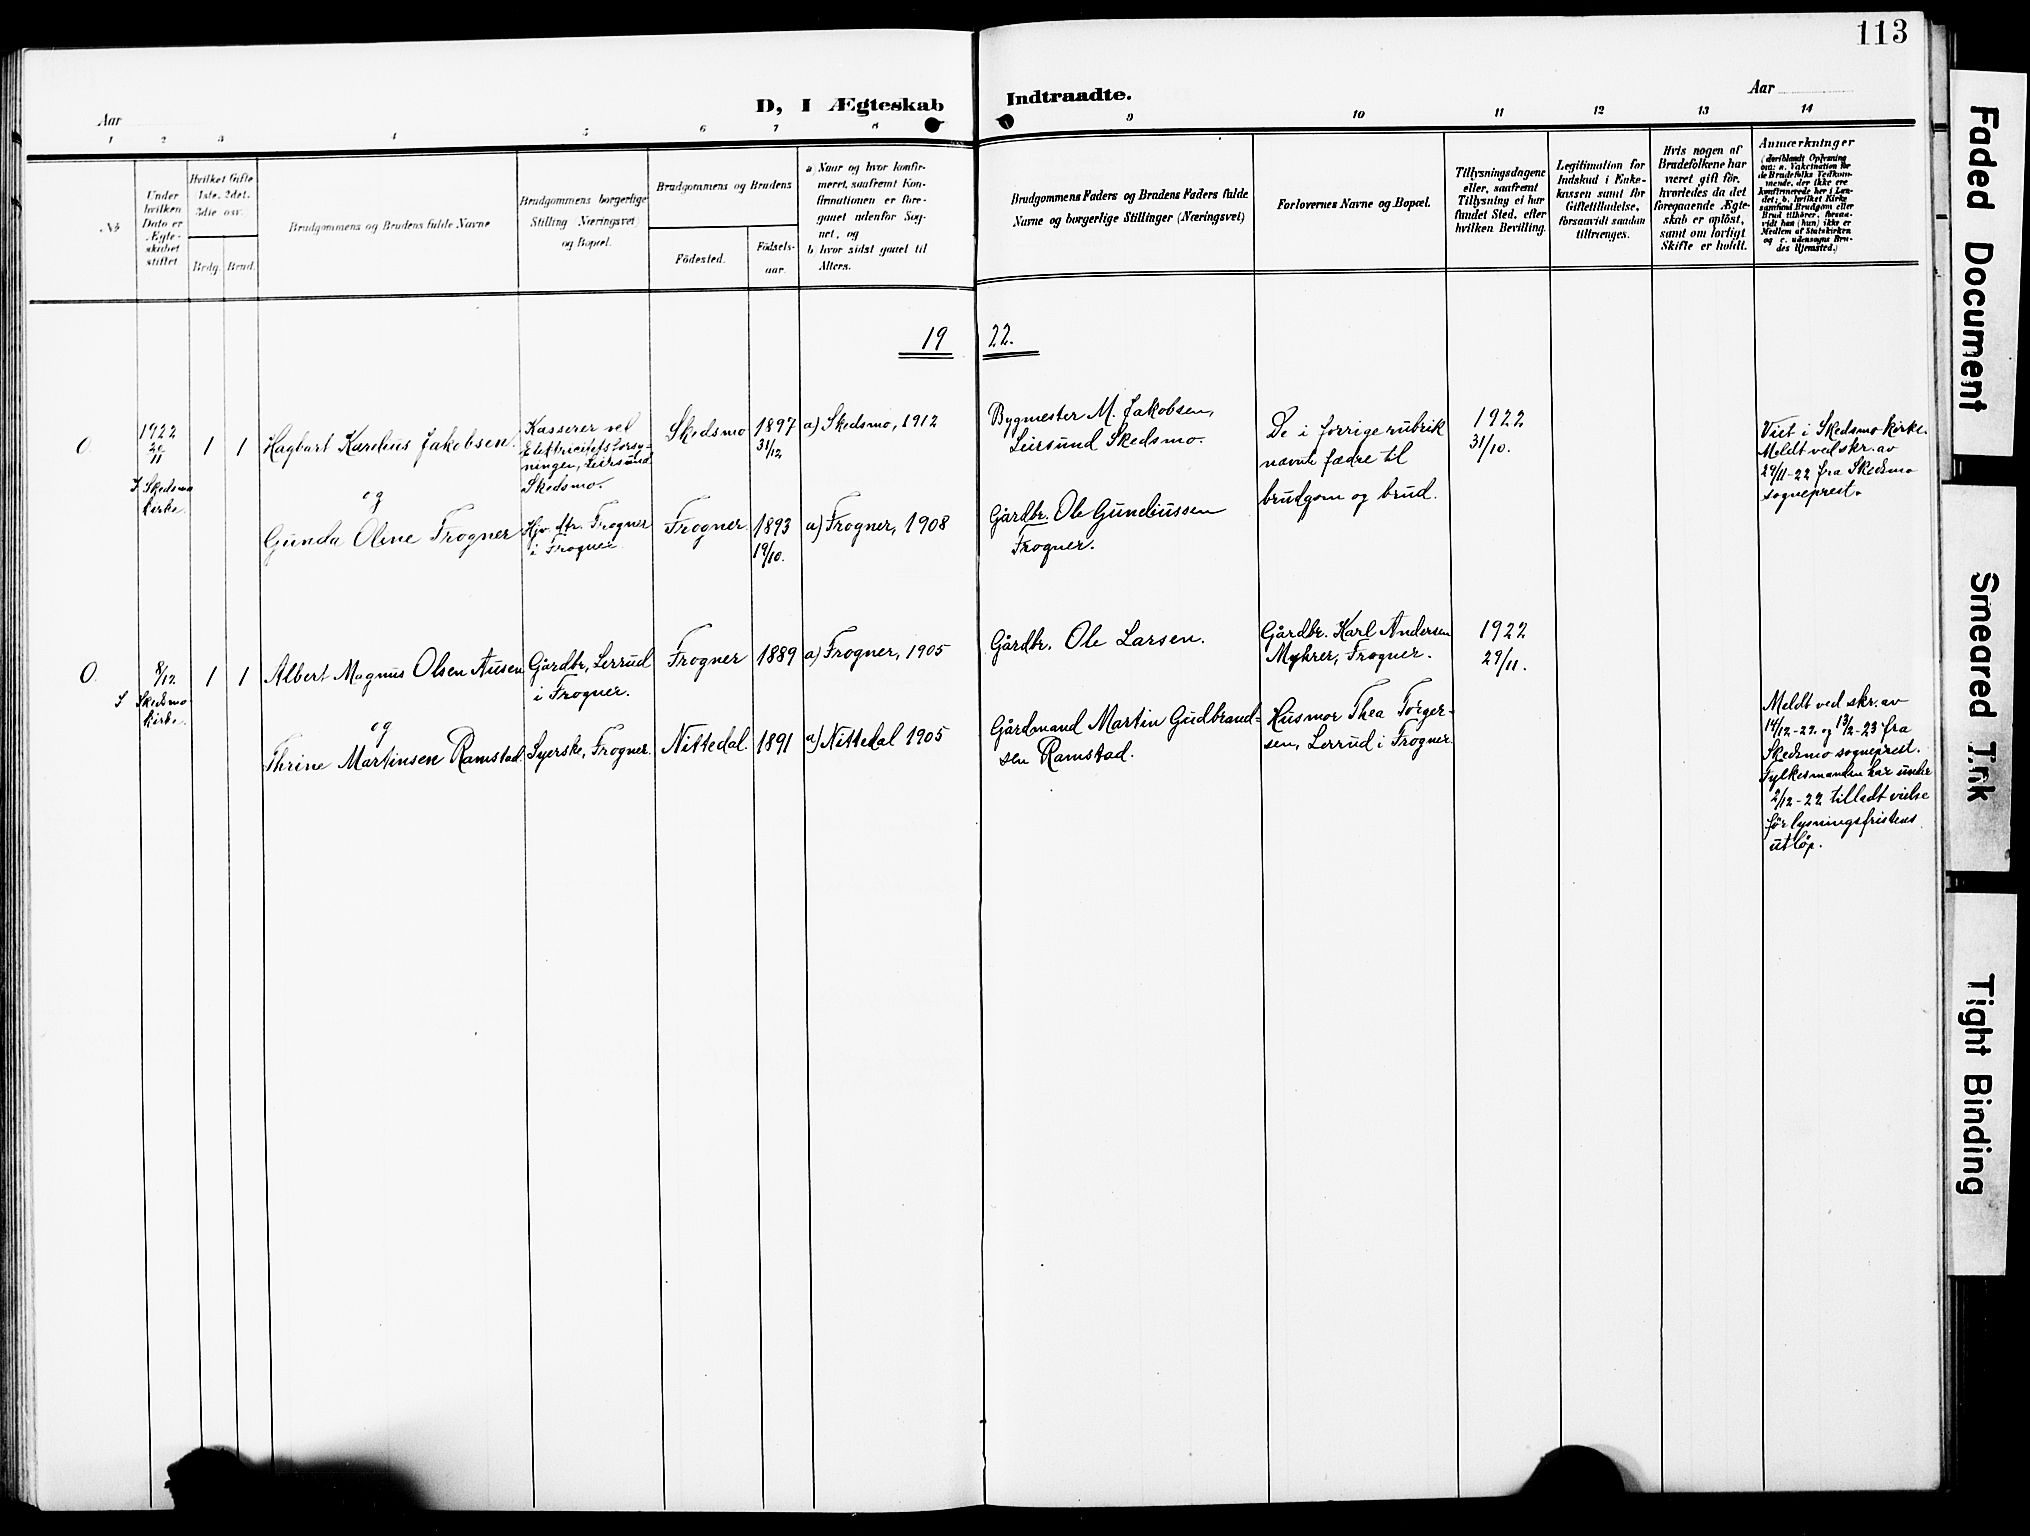 113
D, I Ægteskab Indtraadte.
Aar
Aar
1 2 3 4 5 6 7 8 9 10 11 12 13 14
No
Under
hvilken
Dato er
Ægte-
skabet
stiftet
Hvilket Gifte
1ste, 2det,
3die osv.
Brdg. Brud.
Brudgommens og Brudens fulde Navne
Brudgommens borgerlige
Stilling (Næringsvei)
og Bopæl.
Brudgommens og Brudens
Födested.
Födsels-
aar.
a) Naar og hvor konfir-
meret, saafremt Kon-
firmationen er fore-
gaaet udenfor Sog-
net, og
b) hvor sidst gaaet til
Alters.
Brudgommens Faders og Brudens Faders fulde
Navne og borgerlige Stillinger (Næringsvei)
Forlovernes Navne og Bopæl.
Tillysningsdagene
eller, saafremt
Tillysning ei har
fundet Sted, efter
hvilken Bevilling.
Legitimation for
Indskud i Enke-
kassen samt for
Giftetilladelse,
forsaavidt saadan
tiltrænges.
Hvis nogen af
Brudefolkene har
været gift för,
hvorledes da det
foregaaende Ægte-
skab er oplöst,
samt om lovligt
Skifte er holdt.
Anmærkninger
(deriblandt Oplysning
om: a. Vakcination for
de Brudefolks Vedkom-
mende, der ikke ere
konfirmerede her i Lan-
det; b. hvilket Kirke
samfund Brudgom eller
Brud tilhörer, forsaa-
vidt han (hun) ikke er
Medlem af Statskirken
og c. udensogns Bru-
des Hjemsted.)
19 22.
O.
1922
20/11
I Skedsmo
kirke.
1 1
Hagbart Karelius Jakobsen
og
Gunda Oline Frogner
Kasserer ved
Elektricitetsforsy-
ningen, Leirsund
Skedsmo.
Hjv. dtr. Frogner
i Frogner
Skedsmo
Frogner
1897
31/12
1893
19/10.
a) Skedsmo, 1912
a) Frogner, 1908
Bygmester M. Jakobsen,
Leirsund Skedsmo.
Gårdbr. Ole Gundiussen
Frogner.
De i forrige rubrik
nævnte fædre til
brudgom og brud.
1922
31/10.
Viet i Skedsmo kirke.
Meldt ved skr. av
29/11-22 fra Skedsmo
sogneprest.
O.
8/12.
I Skedsmo
kirke.
1 1
Albert Magnus Olsen Ausen
og
Thrine Martinsen Ramstad
Gårdbr, Lerrud
i Frogner.
Syerske, Frogner.
Frogner
Nittedal
1889
1891
a) Frogner, 1905
a) Nittedal 1905
Gårdbr. Ole Larsen.
Gårdmand Martin Gudbrand-
sen Ramstad.
Gårdbr. Karl Andersen
Myhrer, Frogner.
Husmor Thea Torger-
sen, Lerrud i Frogner
1922
29/11.
Meldt ved skr. av
14/12-22 og 13/2-23 fra
Skedsmo sogneprest.
Fylkesmanden har under
2/12-22 tilladt vielse
før lysningsfristens
utløp.
Faded Document
Smeared Ink
Tight Binding